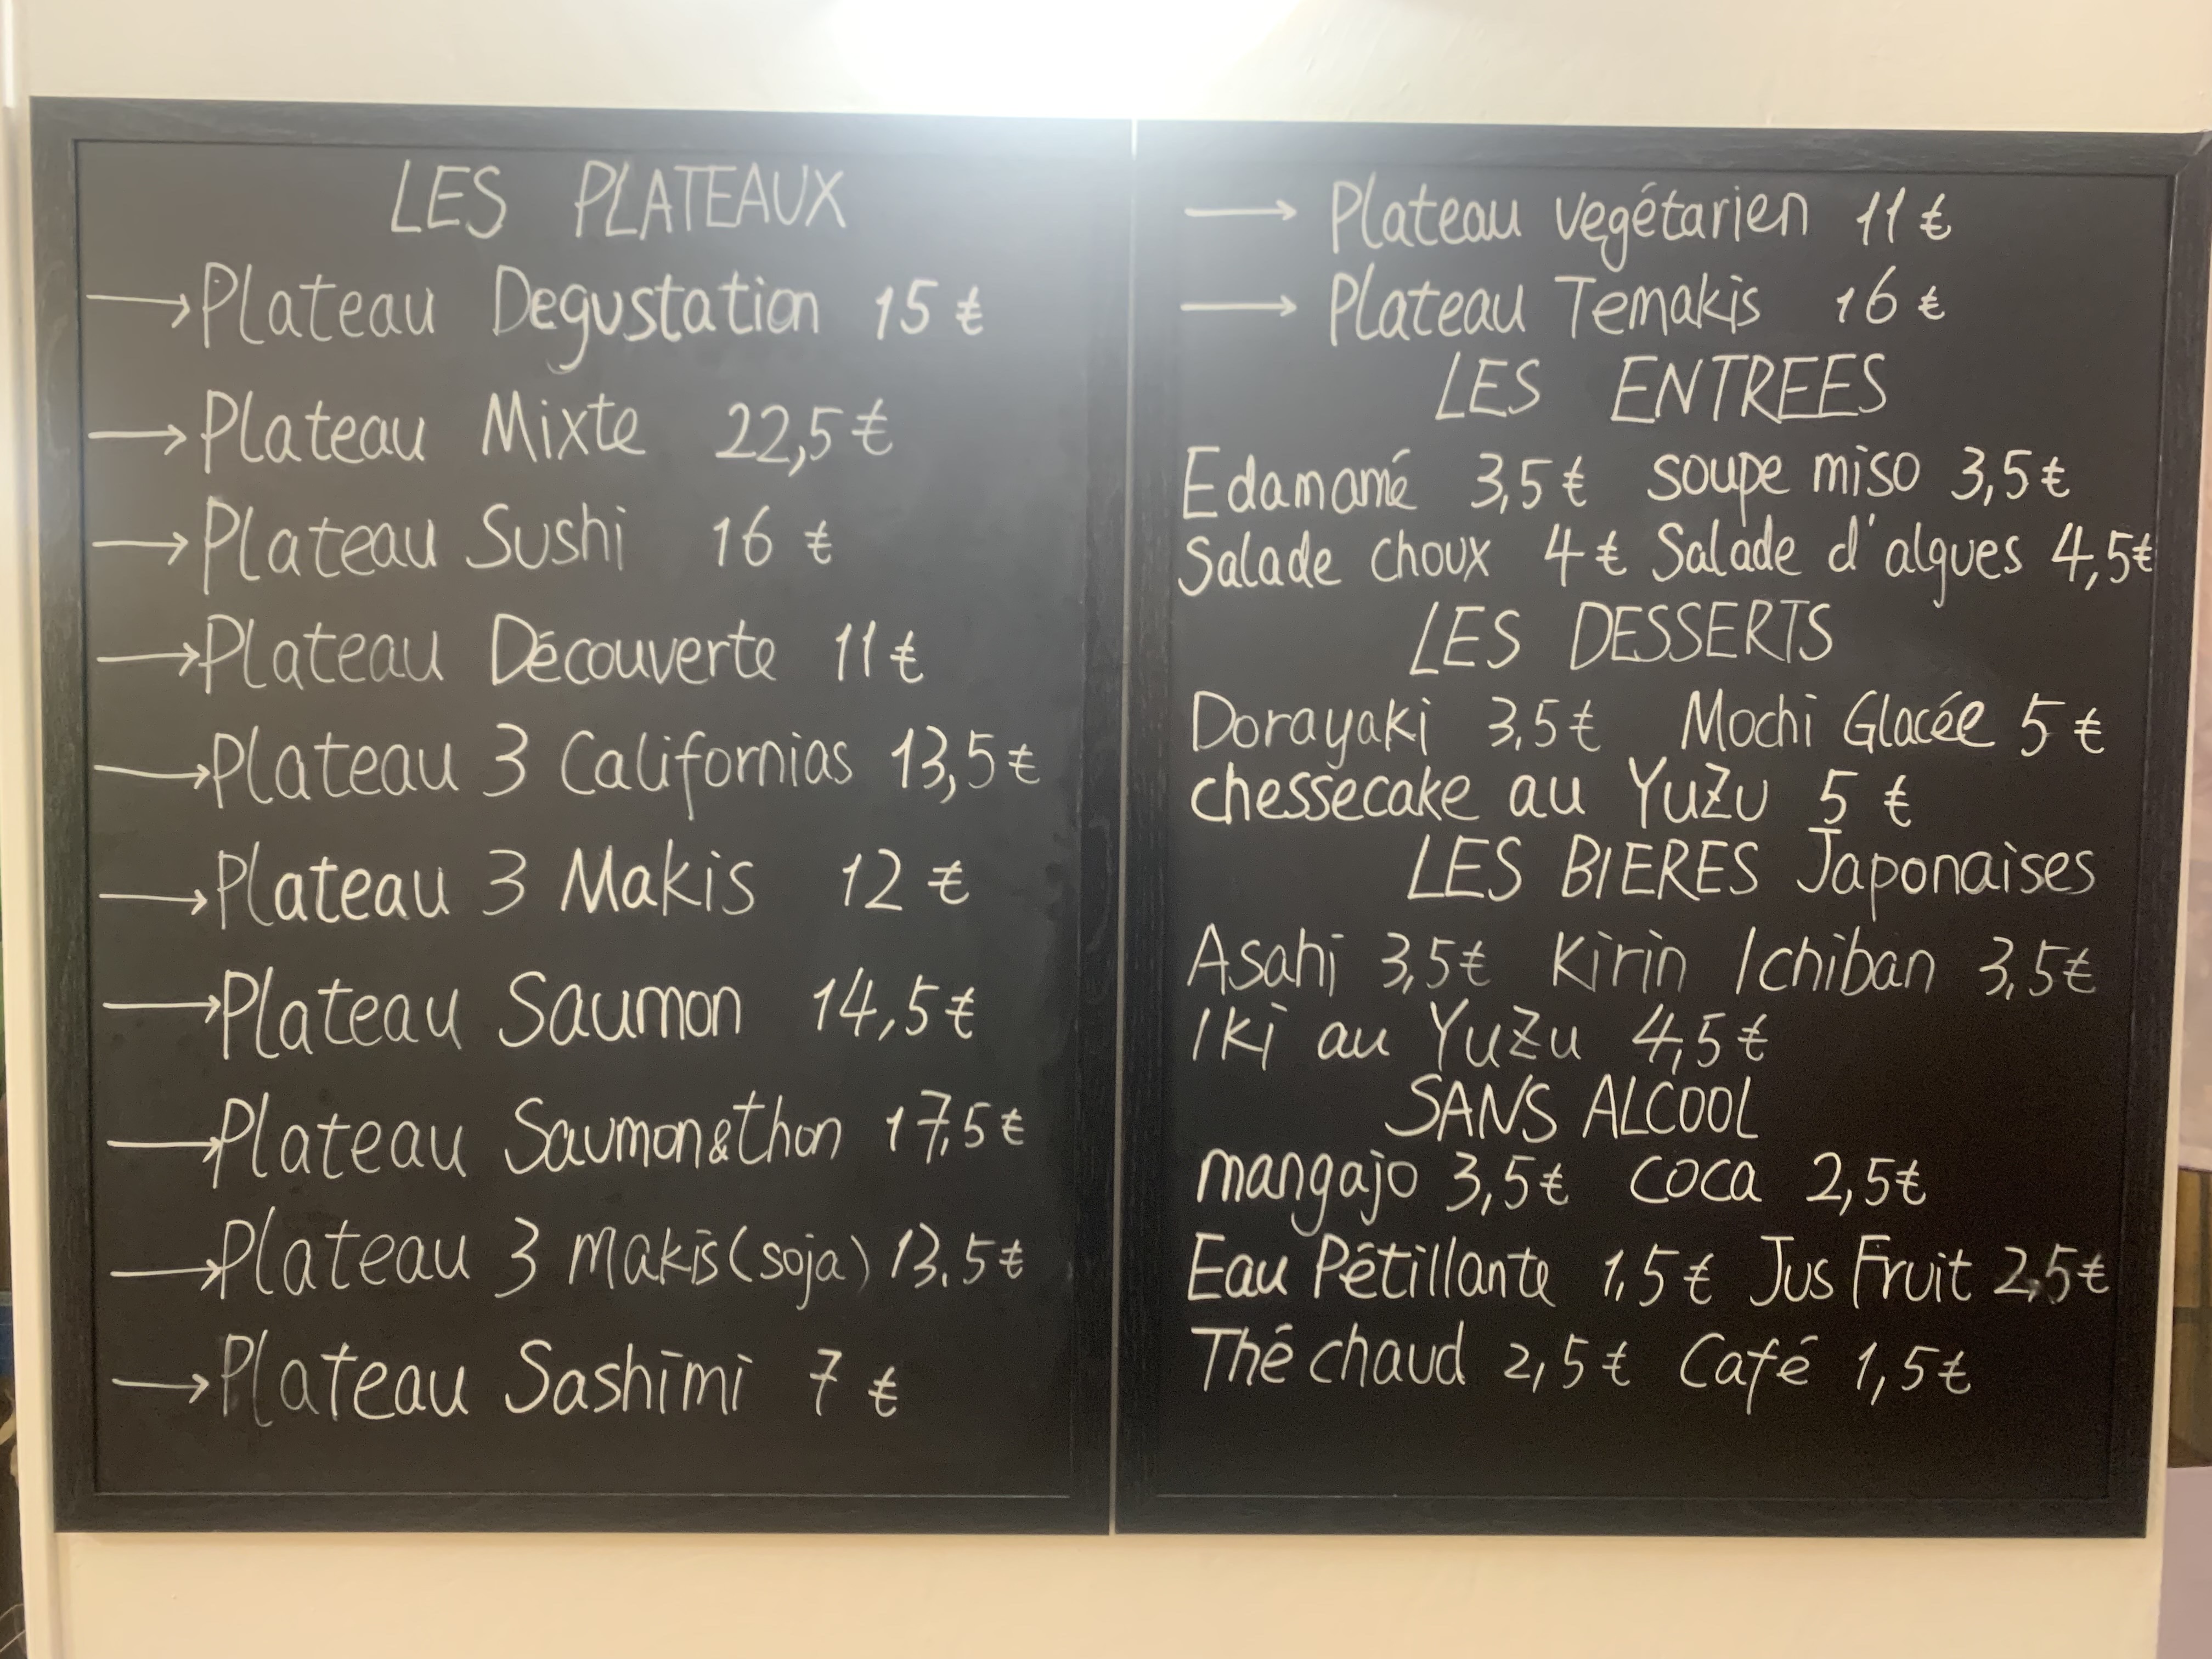 LES PLATEAUX
→ Plateau Degustation 15 €
→ Plateau Mixte 22,5 €
→ Plateau Sushi 16 €
→ Plateau Découverte 11 €
→ Plateau 3 Californias 13,5 €
→ Plateau 3 Makis 12 €
→ Plateau Saumon 14,5 €
→ Plateau Saumon&thon 17,5 €
→ Plateau 3 Makis (soja) 13.5 €
→ Plateau Sashimi 7 €
→ Plateau vegétarien 11 €
→ Plateau Temakis 16 €
LES ENTREES
Edamamé 3,5 € soupe miso 3,5 €
Salade choux 4 € Salade d'algues 4,5 €
LES DESSERTS
Dorayaki 3,5 € Mochi Glacée 5 €
chessecake au YuZu 5 €
LES BIERES Japonaises
Asahi 3,5 € Kirin Ichiban 3,5 €
Iki au YuZu 4,5 €
SANS ALCOOL
mangajo 3,5 € coca 2,5 €
Eau Pétillante 1,5 € Jus Fruit 2,5 €
Thé chaud 2,5 € Café 1,5 €